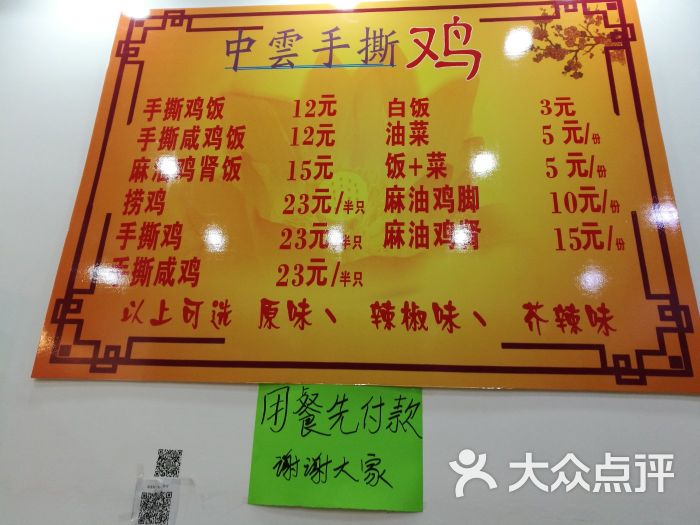 中雲手撕鸡
手撕鸡饭 12元
手撕咸鸡饭 12元
麻油鸡肾饭 15元
捞鸡 23元/半只
手撕鸡 23元/半只
手撕咸鸡 23元/半只
白饭 3元
油菜 5元/份
饭+菜 5元/份
麻油鸡脚 10元/份
麻油鸡肾 15元/份
以上可选 原味、辣椒味、芥辣味
用餐先付款
谢谢大家
大众点评